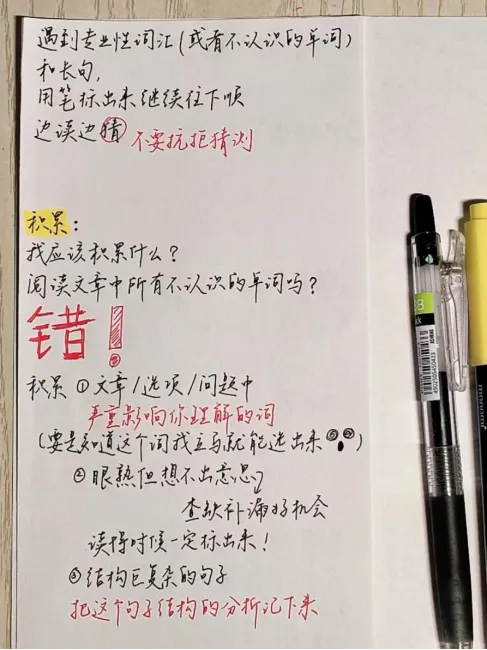 遇到专业性词汇(或者不认识的单词)
和长句,
用笔标出来继续往下顺
边读边猜 不要抗拒猜测
积累:
我应该积累什么?
阅读文章中所有不认识的单词吗?
错!
积累 ①文章/选项/问题中
严重影响你理解的词
(要是知道这个词我立马就能选出来)
②眼熟但想不出意思
查缺补漏好机会
读得时候一定标出来!
③结构巨复杂的句子
把这个句子结构的分析记下来